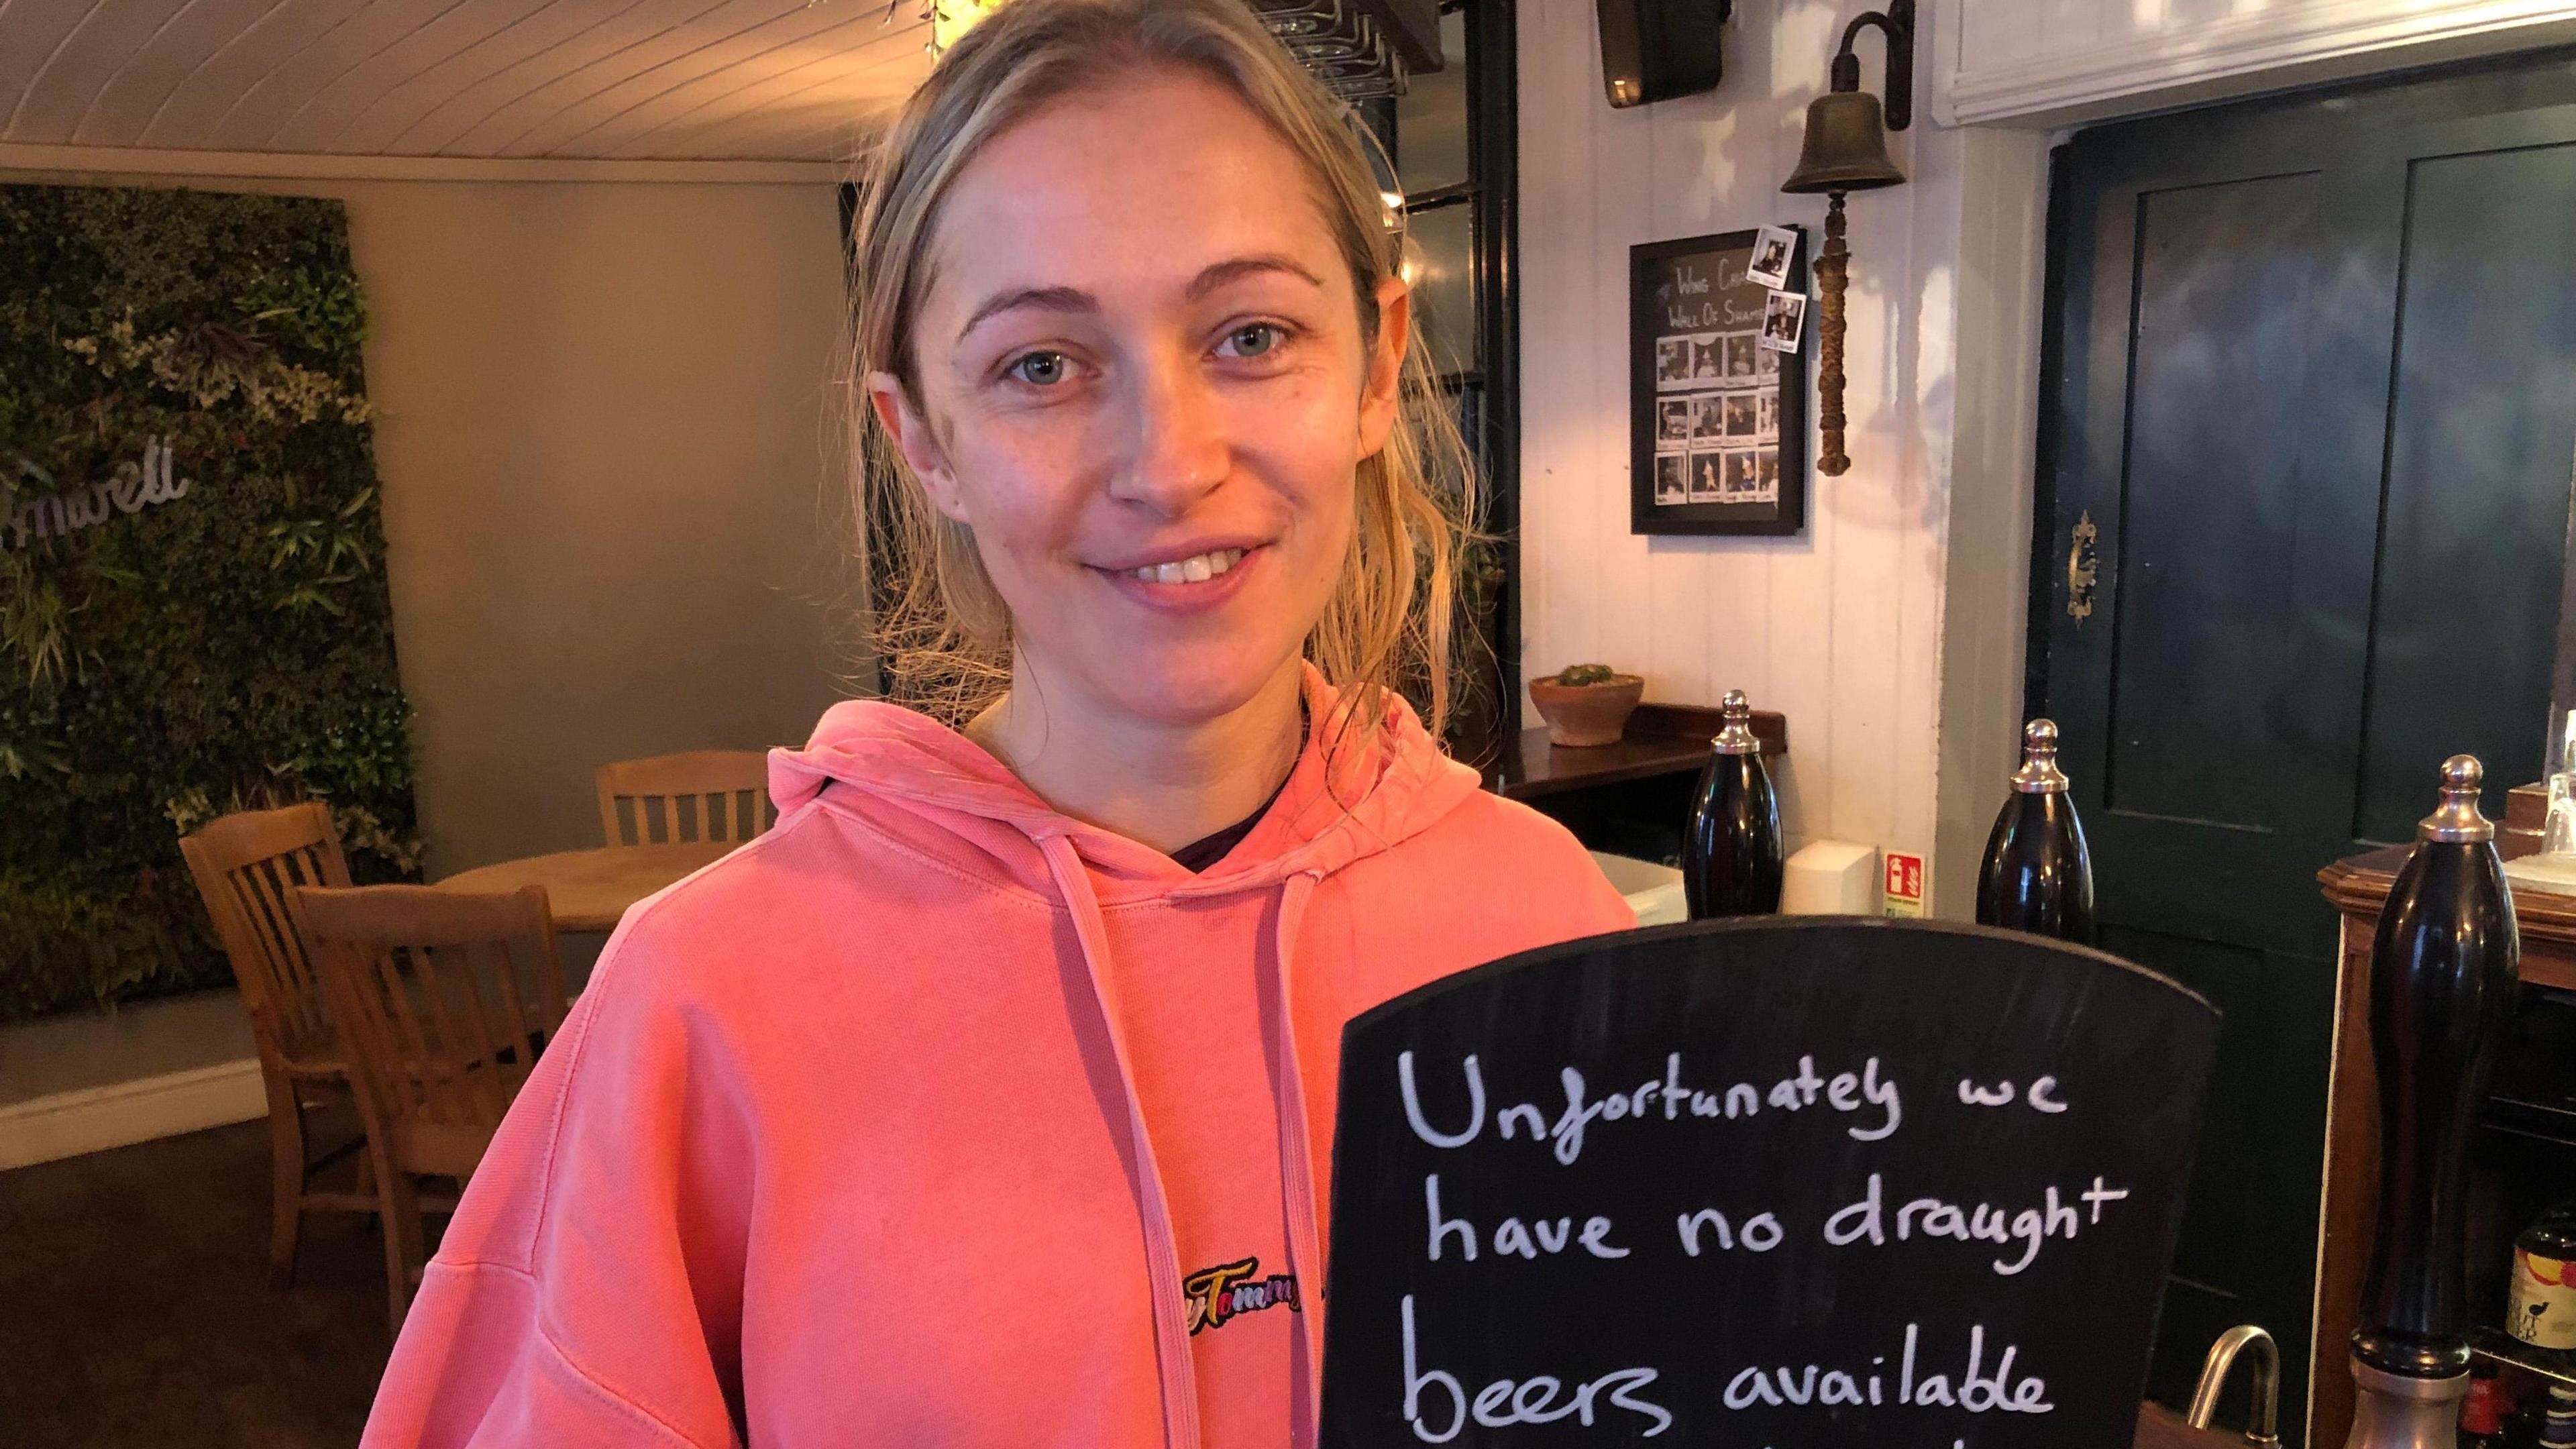 WALL OF SHAME
Tommy
Unfortunately we
have no draught
beers available